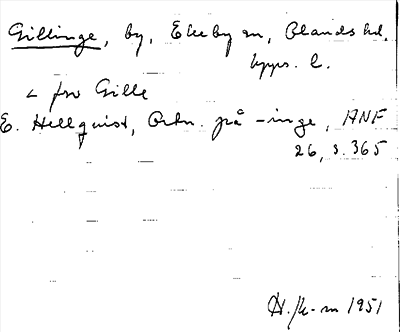 Gillinge, by, Ekeby sn, Olands hd,
Upps. l.
< fsv Gille
E. Hellquist, Ortn. på -inge, ANF
26, s. 365
H. 1951